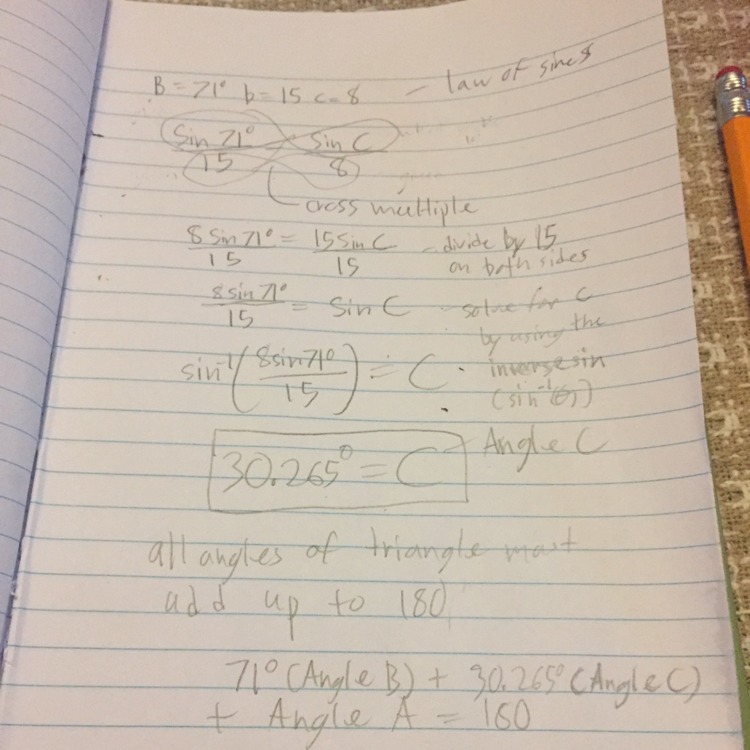 B = 71° b = 15 c = 8 - law of sines
sin 71° sin C
15 8
cross multiple
8 sin 71° = 15 sin C - divide by 15
15 15 on both sides
8 sin 71° = sin C - solve for C
15 by using the
sin⁻¹(8 sin 71° / 15) = C . inverse sin
(sin⁻¹(θ))
30.265° = C - Angle C
all angles of triangle must
add up to 180
71° (Angle B) + 30.265° (Angle C)
+ Angle A = 180